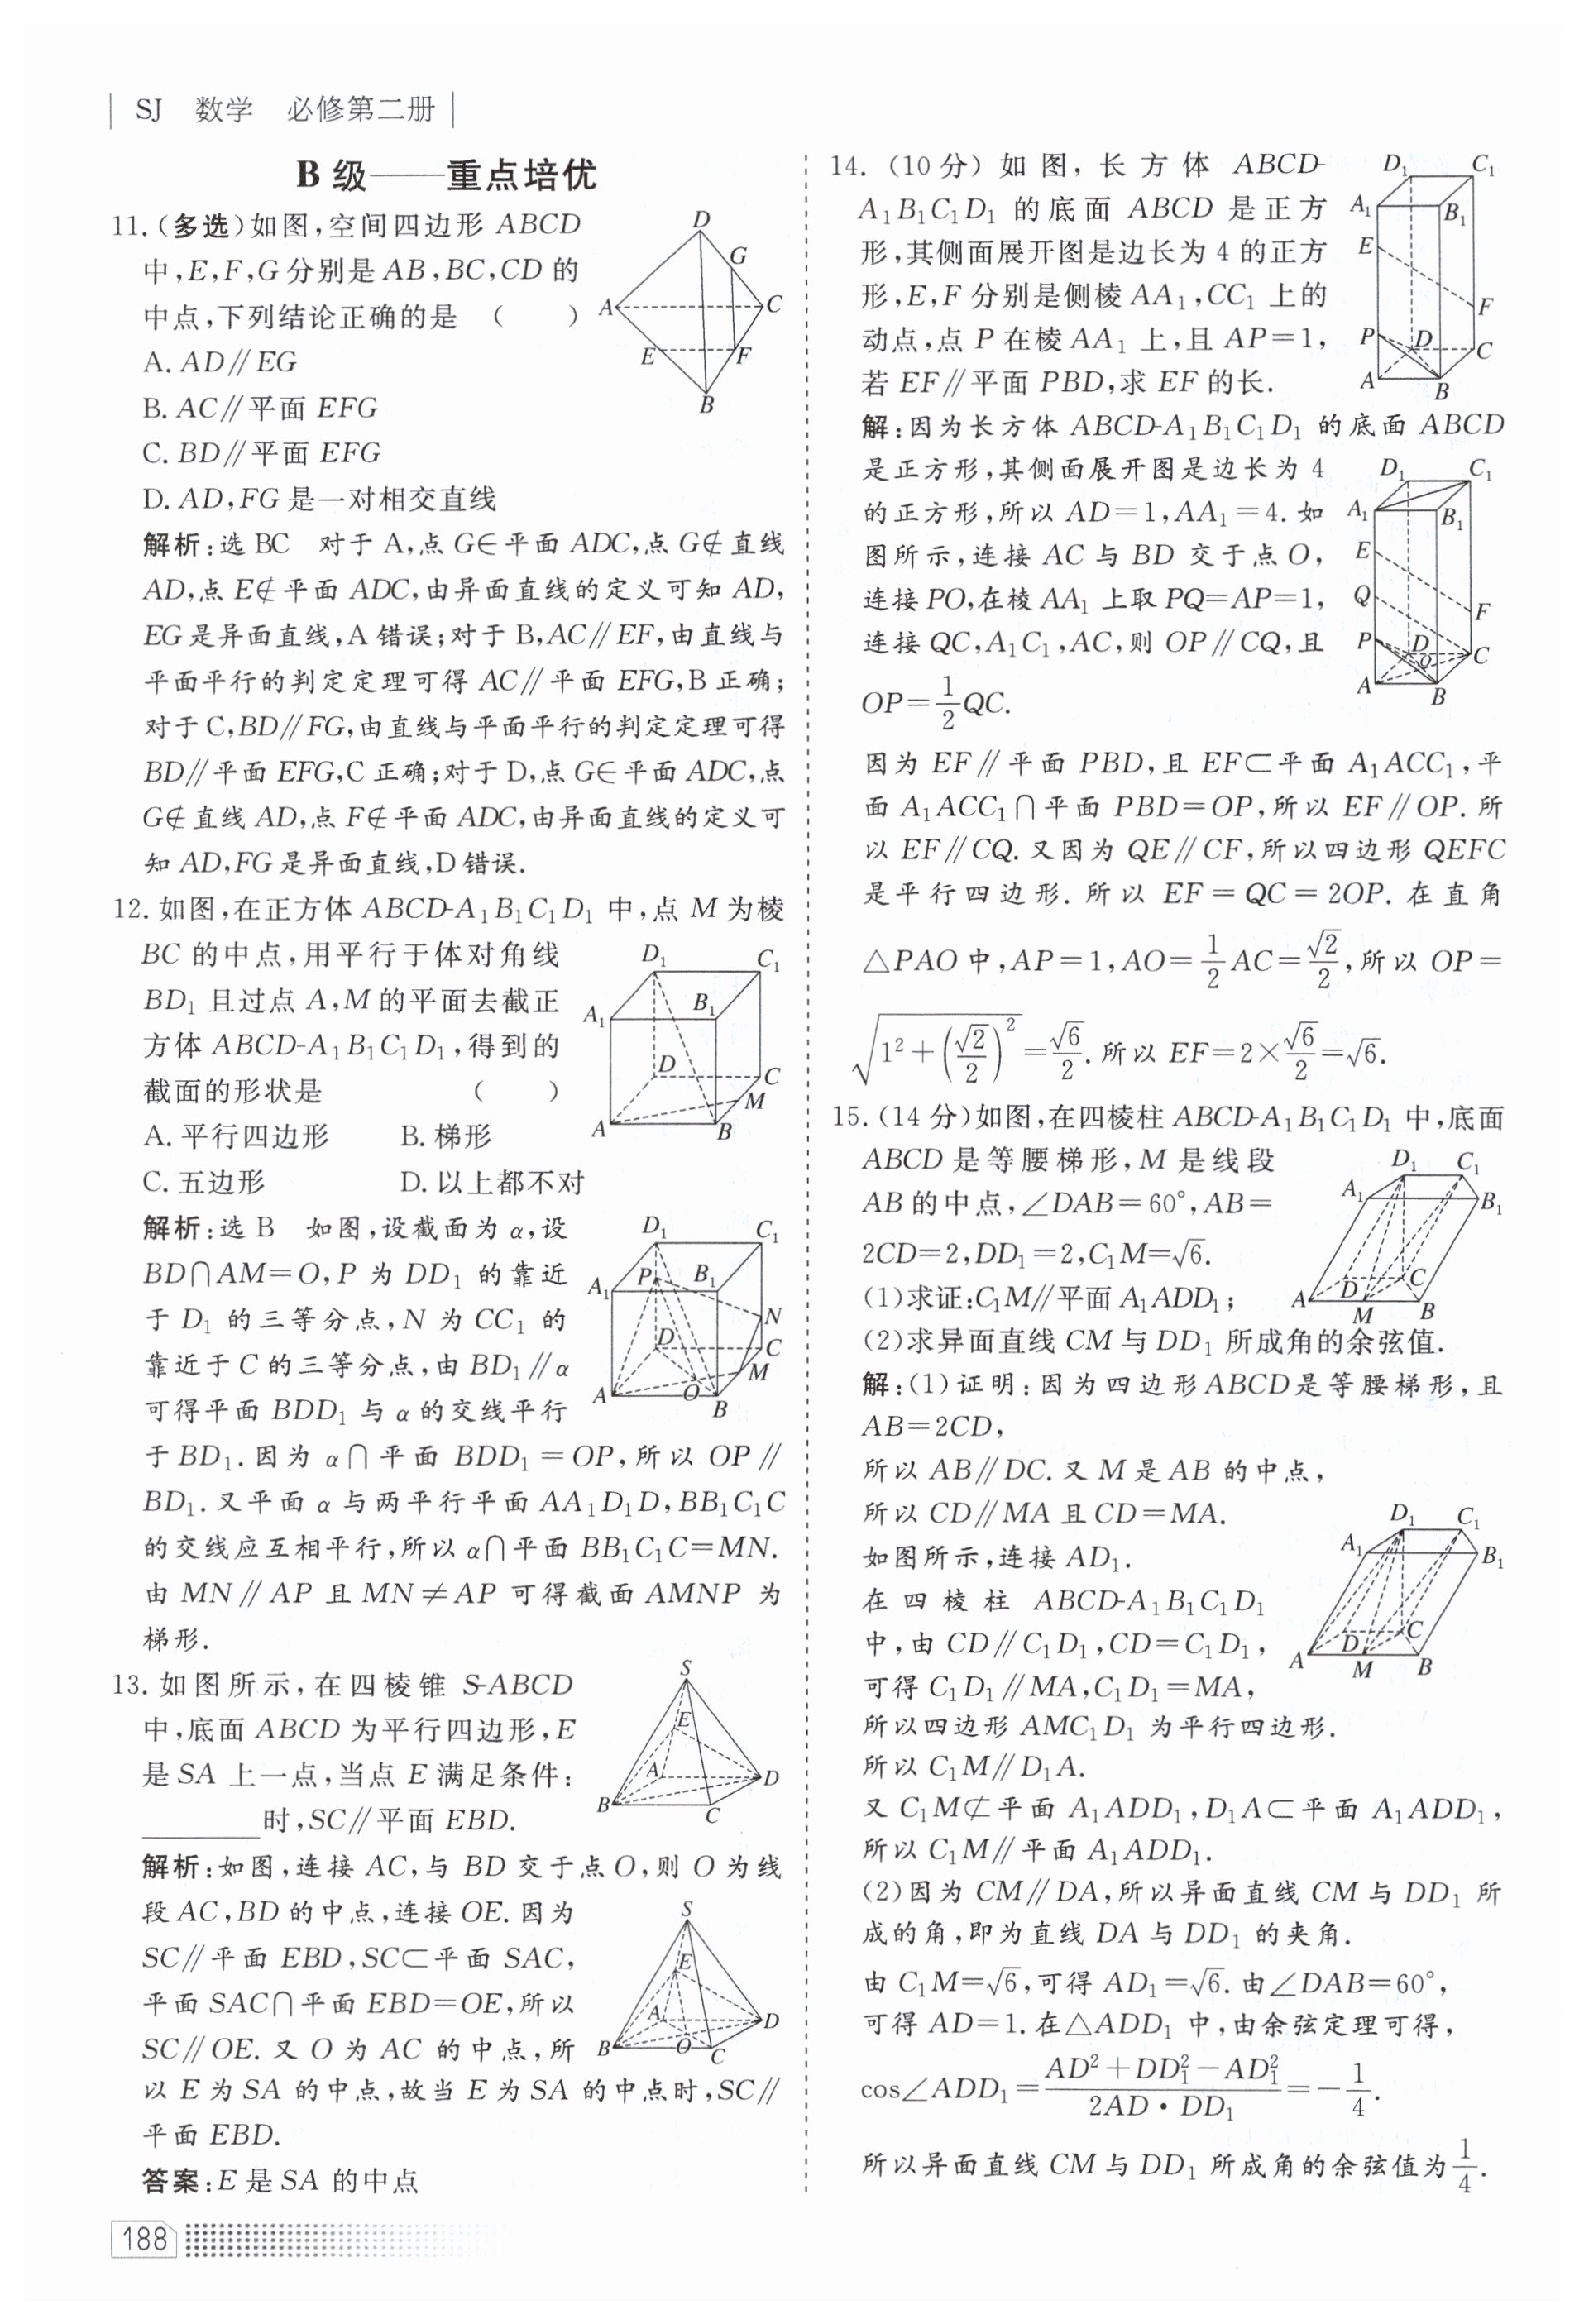 SJ 数学 必修第二册
B 级——重点培优
11.(多选)如图,空间四边形 ABCD
中,E,F,G 分别是 AB,BC,CD 的
中点,下列结论正确的是 ( )
A. AD∥EG
B. AC∥平面 EFG
C. BD∥平面 EFG
D. AD,FG 是一对相交直线
D
G
A
C
E
F
B
解析:选 BC 对于 A,点 G∈平面 ADC,点 G∉直线
AD,点 E∉平面 ADC,由异面直线的定义可知 AD,
EG 是异面直线,A 错误;对于 B,AC∥EF,由直线与
平面平行的判定定理可得 AC∥平面 EFG,B 正确;
对于 C,BD∥FG,由直线与平面平行的判定定理可得
BD∥平面 EFG,C 正确;对于 D,点 G∈平面 ADC,点
G∉直线 AD,点 F∉平面 ADC,由异面直线的定义可
知 AD,FG 是异面直线,D 错误.
12. 如图,在正方体 ABCD-A₁B₁C₁D₁ 中,点 M 为棱
BC 的中点,用平行于体对角线
BD₁ 且过点 A,M 的平面去截正
方体 ABCD-A₁B₁C₁D₁,得到的
截面的形状是 ( )
A. 平行四边形 B. 梯形
C. 五边形 D. 以上都不对
D₁
C₁
A₁
B₁
D
C
M
A
B
解析:选 B 如图,设截面为 α,设
BD∩AM=O,P 为 DD₁ 的靠近
于 D₁ 的三等分点,N 为 CC₁ 的
靠近于 C 的三等分点,由 BD₁∥α
可得平面 BDD₁ 与 α 的交线平行
于 BD₁. 因为 α∩平面 BDD₁=OP,所以 OP∥
BD₁. 又平面 α 与两平行平面 AA₁D₁D,BB₁C₁C
的交线应互相平行,所以 α∩平面 BB₁C₁C=MN.
由 MN∥AP 且 MN≠AP 可得截面 AMNP 为
梯形.
D₁
C₁
P
B₁
A₁
N
D
C
M
A
O
B
13. 如图所示,在四棱锥 S-ABCD
中,底面 ABCD 为平行四边形,E
是 SA 上一点,当点 E 满足条件:
________时,SC∥平面 EBD.
S
E
A
D
B
C
解析:如图,连接 AC,与 BD 交于点 O,则 O 为线
段 AC,BD 的中点,连接 OE. 因为
SC∥平面 EBD,SC⊂平面 SAC,
平面 SAC∩平面 EBD=OE,所以
SC∥OE. 又 O 为 AC 的中点,所
以 E 为 SA 的中点,故当 E 为 SA 的中点时,SC∥
平面 EBD.
S
E
A
D
B
O
C
答案:E 是 SA 的中点
188
14. (10 分) 如图,长方体 ABCD-
A₁B₁C₁D₁ 的底面 ABCD 是正方
形,其侧面展开图是边长为 4 的正方
形,E,F 分别是侧棱 AA₁,CC₁ 上的
动点,点 P 在棱 AA₁ 上,且 AP=1,
若 EF∥平面 PBD,求 EF 的长.
D₁
C₁
A₁
B₁
E
F
P
D
C
A
B
解:因为长方体 ABCD-A₁B₁C₁D₁ 的底面 ABCD
是正方形,其侧面展开图是边长为 4
的正方形,所以 AD=1,AA₁=4. 如
图所示,连接 AC 与 BD 交于点 O,
连接 PO,在棱 AA₁ 上取 PQ=AP=1,
连接 QC,A₁C₁,AC,则 OP∥CQ,且
OP=1/2 QC.
D₁
C₁
A₁
B₁
E
Q
F
P
D
O
C
A
B
因为 EF∥平面 PBD,且 EF⊂平面 A₁ACC₁,平
面 A₁ACC₁∩平面 PBD=OP,所以 EF∥OP. 所
以 EF∥CQ. 又因为 QE∥CF,所以四边形 QEFC
是平行四边形. 所以 EF=QC=2OP. 在直角
△PAO 中,AP=1,AO=1/2 AC=√2/2,所以 OP=
√(1²+(√2/2)²)=√6/2. 所以 EF=2×√6/2=√6.
15. (14 分)如图,在四棱柱 ABCD-A₁B₁C₁D₁ 中,底面
ABCD 是等腰梯形,M 是线段
AB 的中点,∠DAB=60°,AB=
2CD=2,DD₁=2,C₁M=√6.
(1)求证:C₁M∥平面 A₁ADD₁;
(2)求异面直线 CM 与 DD₁ 所成角的余弦值.
D₁
C₁
A₁
B₁
D
C
A
M
B
解:(1)证明:因为四边形 ABCD 是等腰梯形,且
AB=2CD,
所以 AB∥DC. 又 M 是 AB 的中点,
所以 CD∥MA 且 CD=MA.
如图所示,连接 AD₁.
在四棱柱 ABCD-A₁B₁C₁D₁
中,由 CD∥C₁D₁,CD=C₁D₁,
可得 C₁D₁∥MA,C₁D₁=MA,
所以四边形 AMC₁D₁ 为平行四边形.
所以 C₁M∥D₁A.
D₁
C₁
A₁
B₁
D
C
A
M
B
又 C₁M⊄平面 A₁ADD₁,D₁A⊂平面 A₁ADD₁,
所以 C₁M∥平面 A₁ADD₁.
(2)因为 CM∥DA,所以异面直线 CM 与 DD₁ 所
成的角,即为直线 DA 与 DD₁ 的夹角.
由 C₁M=√6,可得 AD₁=√6. 由∠DAB=60°,
可得 AD=1. 在△ADD₁ 中,由余弦定理可得,
cos∠ADD₁=(AD²+DD₁²-AD₁²)/(2AD·DD₁)=-1/4.
所以异面直线 CM 与 DD₁ 所成角的余弦值为 1/4.